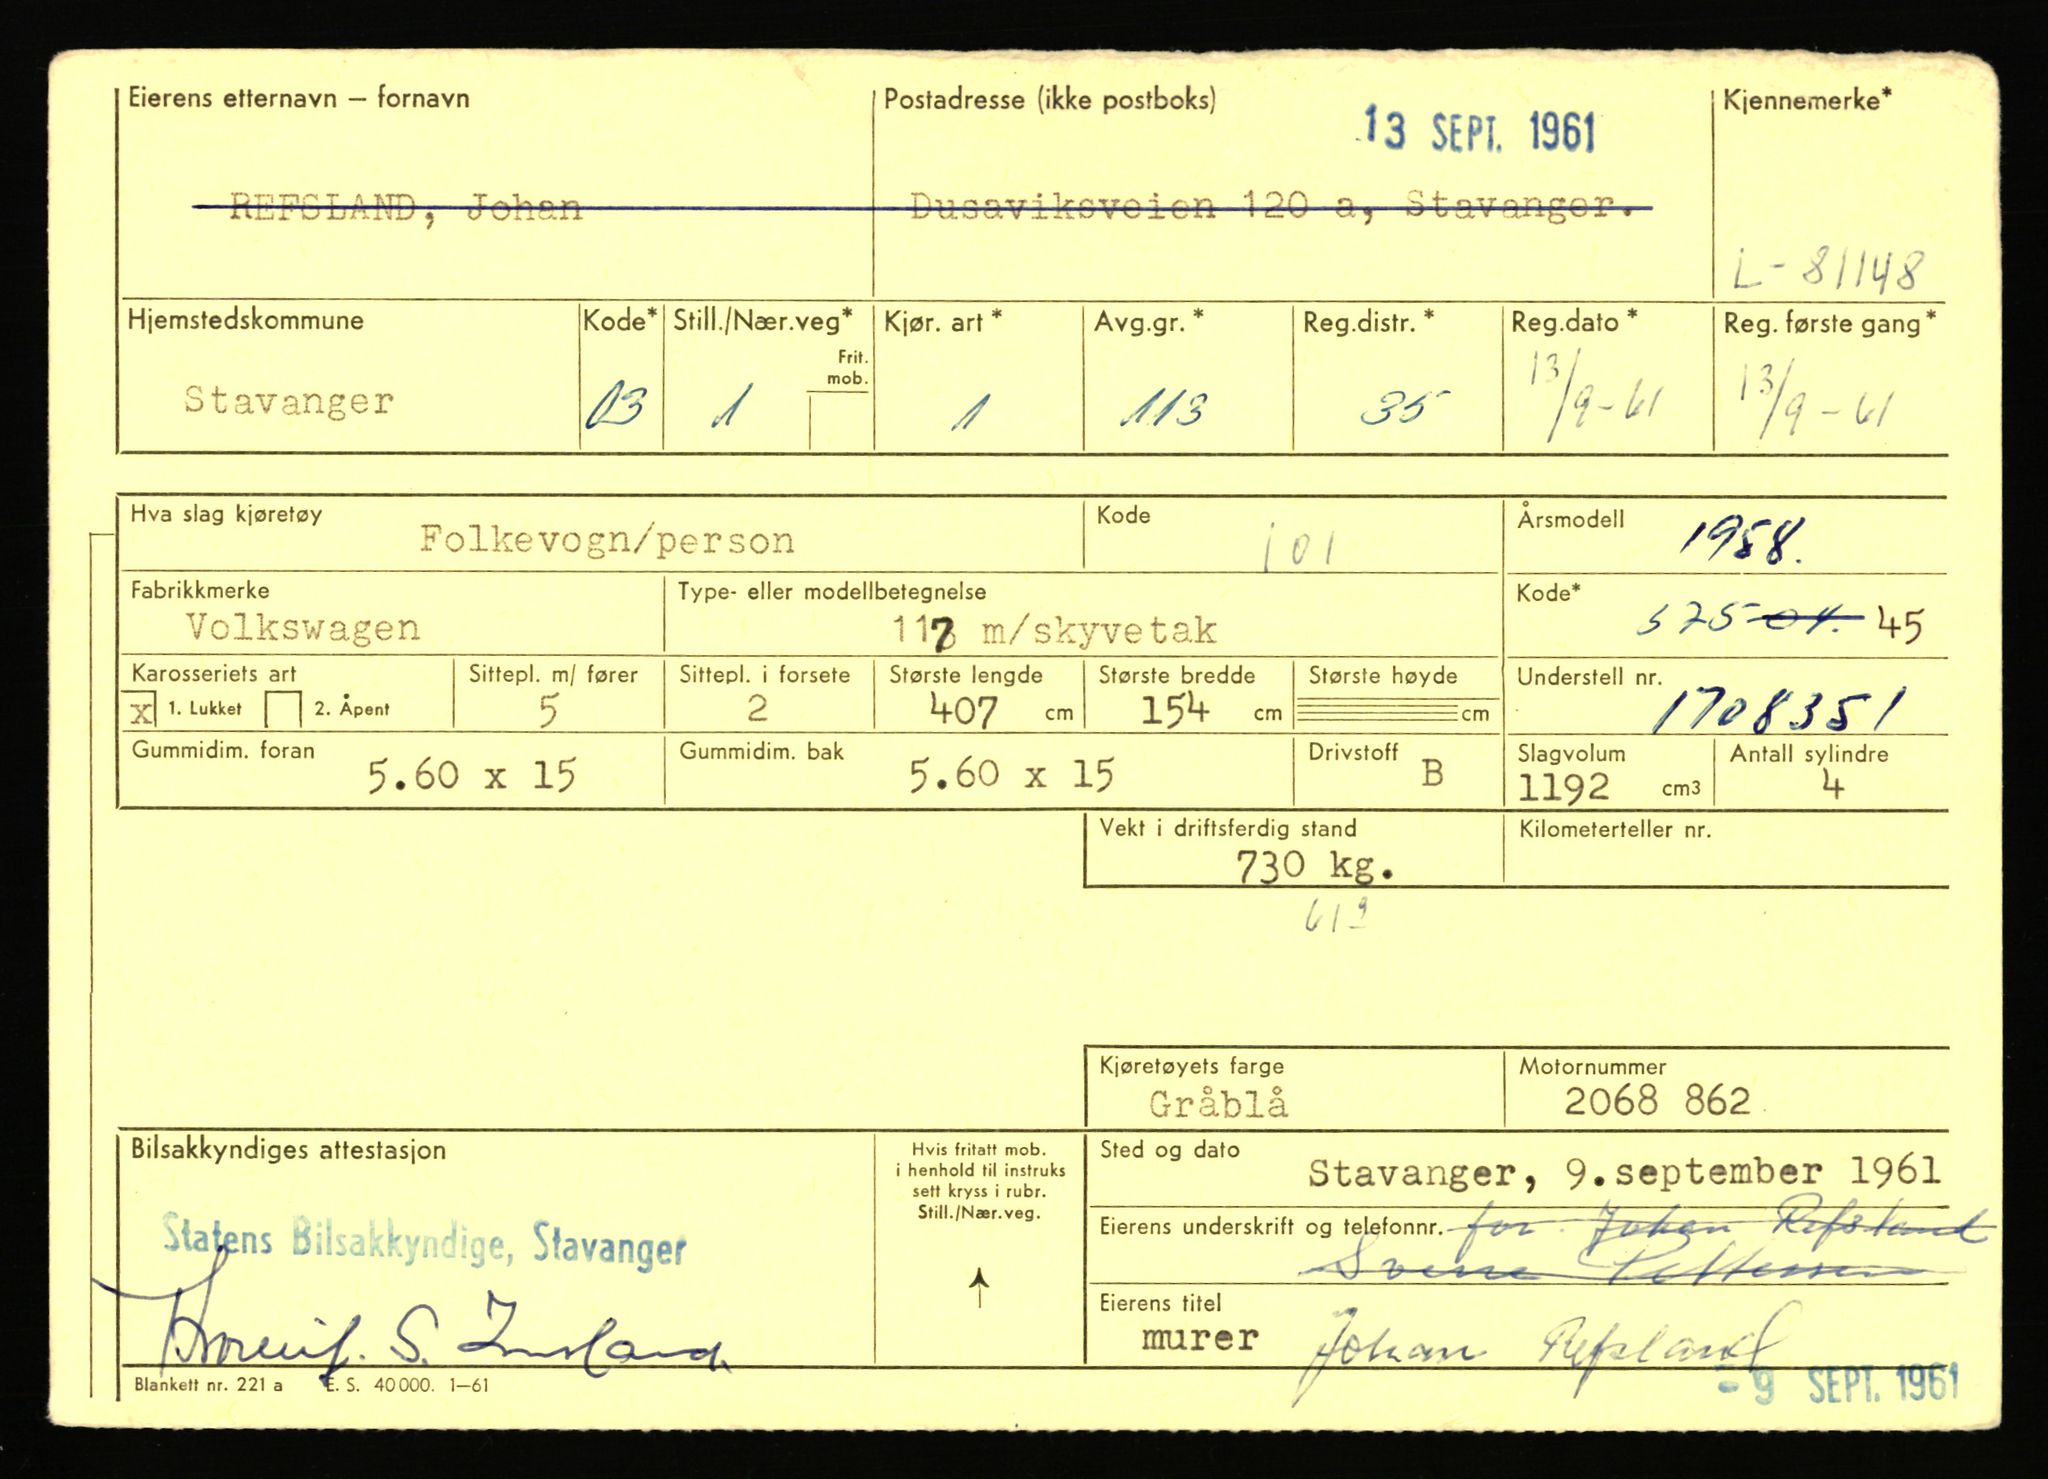 Eierens etternavn — fornavn
Postadresse (ikke postboks)
Kjennemerke*
13 SEPT. 1961
REFSLAND, Johan
Dusaviksveien 120 a, Stavanger.
L-81148
Hjemstedskommune
Kode*
Still./Nær.veg*
Frit. mob.
Kjør. art *
Avg.gr. *
Reg.distr. *
Reg.dato *
Reg. første gang *
Stavanger
03
1
1
113
35
13/9-61
13/9-61
Hva slag kjøretøy
Folkevogn/person
Kode
101
Årsmodell
1958.
Fabrikkmerke
Volkswagen
Type- eller modellbetegnelse
117 m/skyvetak
Kode*
575-04. 45
Karosseriets art
x 1. Lukket 2. Åpent
Sittepl. m/ fører
5
Sittepl. i forsete
2
Største lengde
407 cm
Største bredde
154 cm
Største høyde
cm
Understell nr.
1708351
Gummidim. foran
5.60 x 15
Gummidim. bak
5.60 x 15
Drivstoff
B
Slagvolum
1192 cm3
Antall sylindre
4
Vekt i driftsferdig stand
730 kg.
Kilometerteller nr.
61 9
Kjøretøyets farge
Gråblå
Motornummer
2068 862
Bilsakkyndiges attestasjon
Statens Bilsakkyndige, Stavanger
Hvis fritatt mob.
i henhold til instruks
sett kryss i rubr.
Still./Nær.veg.
Sted og dato
Stavanger, 9.september 1961
Eierens underskrift og telefonnr. for Johan Refsland
Eierens titel
murer
Johan Refsland
-9 SEPT. 1961
Blankett nr. 221 a E. S. 40000. 1—61